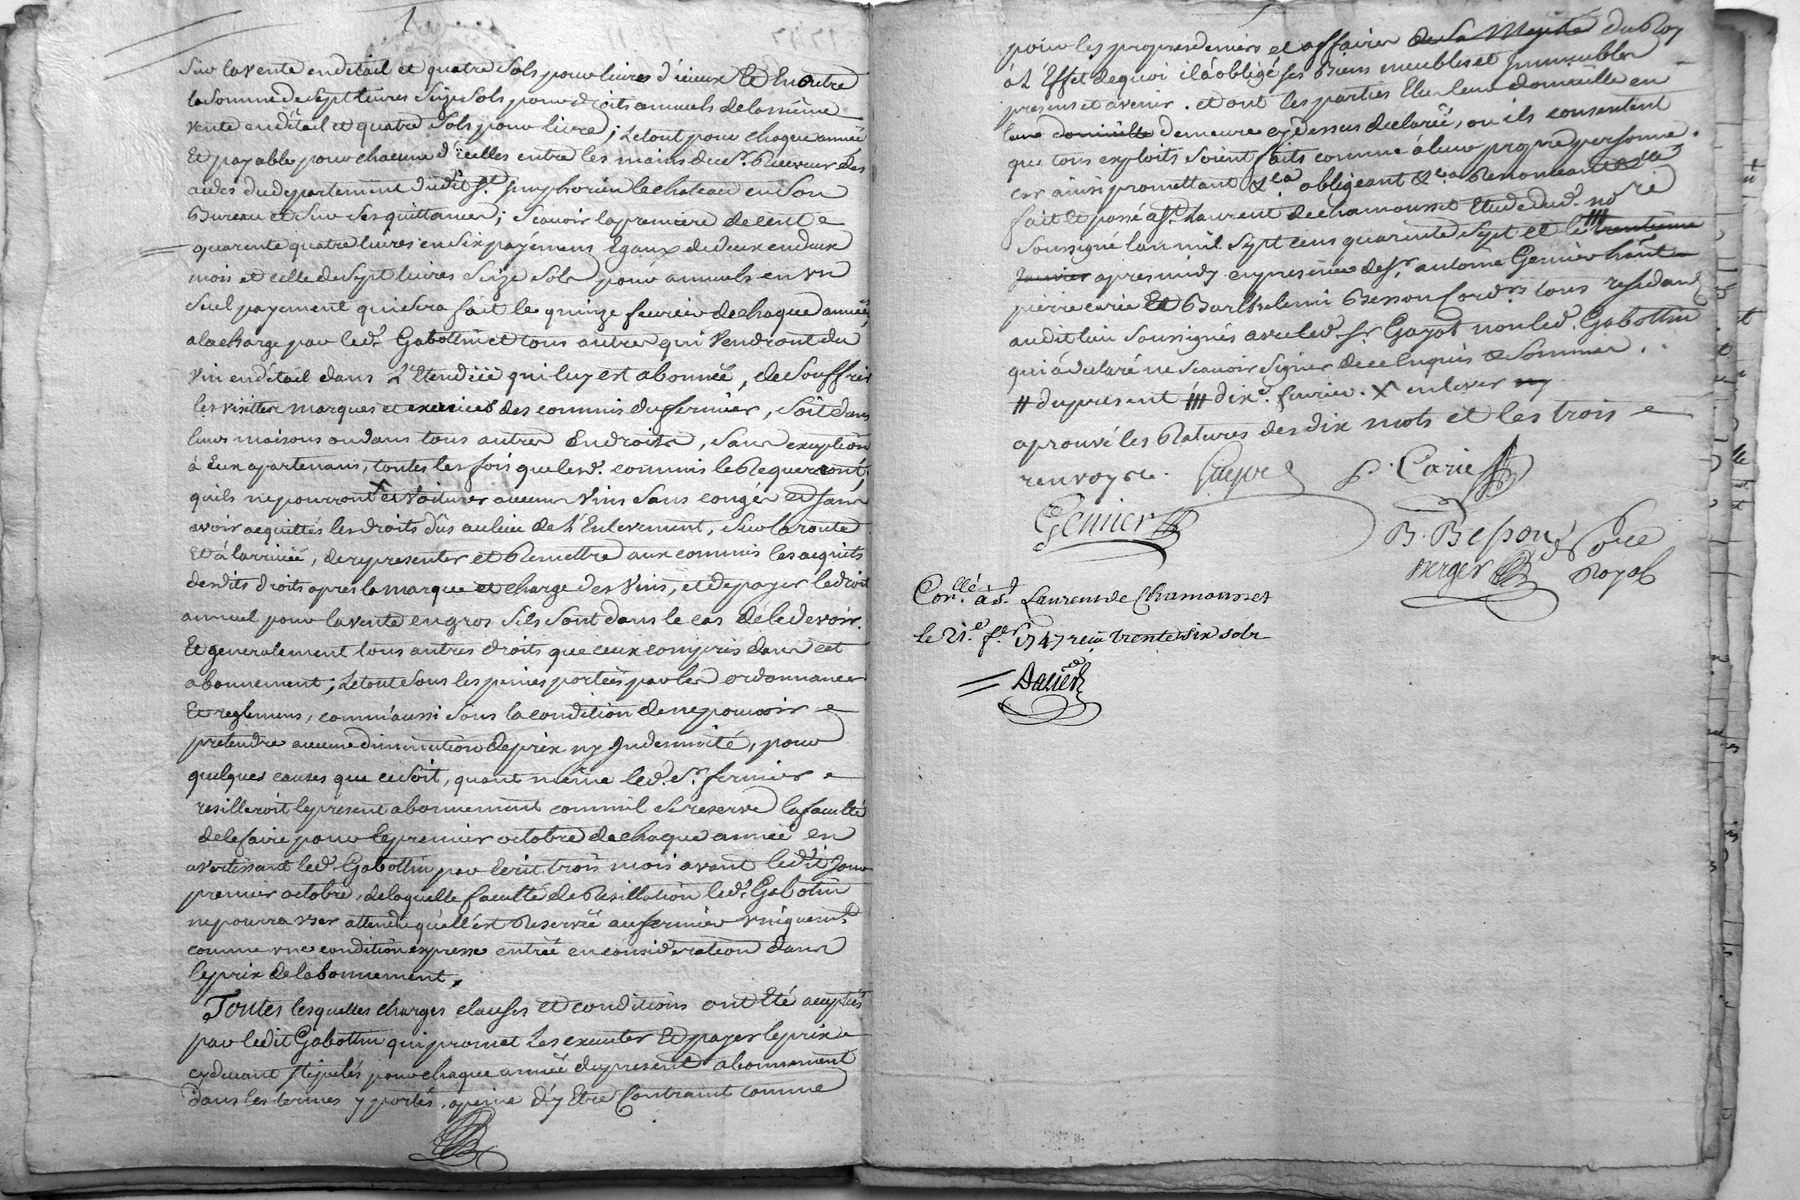 Sur la vente en detail et quatre Sols pour livres d'iceux Et En outre
la Somme de Sept livres Seize Sols pour droits annuels de la meme
vente en détail et quatre Sols pour livre; Le tout pour chaque année
Et payable pour chacune d'icelles entre les mains du Sr. Receveur des
aides du departement dudit St. Simphorien le chateau en Son
Bureau et Sur Ses quittances; Scavoir la premiere de cent
quarente quatre livres en Six payémens Egaux de deux en deux
mois et celle de Sept livres Seize Sols pour annuels en un
Seul payement qui Sera fait le quinze fevrier de chaque année,
a la charge par led. Gabottin et tous autres qui Vendront du
Vin en détail dans L'Etendüe qui luy est abonnée, de Souffrir
les visittes marques et exercices des commis du fermier, Soit dans
leurs maisons ou dans tous autres Endroits, Sans exception
à Eux apartenans, toutes les fois que lesd. commis le Requerront,
quils ne pourront X et voiturer aucuns Vins Sans congés et Sans
avoir acquittés les droits dûs au lieu de L'Enlevement, Sur la route
Et à larrivée, de representer et Remettre aux commis les acquits
desdits droits apres la marque et charge des Vins, et de payer le droit
annuel pour la vente en gros Sils Sont dans le cas de le devoir.
Et generalement tous autres droits que ceux compris dans cet
abonnement; Le tout Sous les peines portées par les ordonnances
Et reglemens, comm'aussi Sous la condition de ne pouvoir
pretendre aucune diminution de prix ny Indemnité, pour
quelques causes que ce Soit, quant même led. Sr. fermier
resilleroit le present abonnement comm'il Se reserve la faculté
de le faire pour le premier octobre de chaque année en
avertissant led. Gabottin par ecrit trois mois avant ledit Jour
premier octobre, de laquelle faculté de Resillation led. Gabotin
ne pourra user attendu qu'elle est Reservée au fermier uniquemt.
comme une condition expresse entrée en consideration dans
le prix de labonnement.
Toutes lesquelles charges clauses et conditions ont Eté acceptées
par ledit Gabottin qui promet Les executer Et payer le prix
cy devant stipulés pour chaque année du present abonnement
dans les termes y portés, a peine d'y Etre Contraint comme
pour les propres deniers et affaires de Sa Majesté du Roy
à L'Effet de quoi il a obligé Ses Biens meubles et Immeubles
presens et avenir. et ont les parties Elu leur domicille en
leur domicille demeure cy dessus declarée, ou ils consentent
que tous exploits Soient faits comme à leur propre personne.
car ainsi promettant &ca. obligeant &ca. Renonceant &ca.
fait Et passé a St. Laurent de chamousset Etude dud. no.re
Soussigné lan mil Sept cens quarente Sept et le /// trentieme
Janvier apres midy en presence de Sr. antoine Genier
pierre carie Et Barthelemi Besson Cord.rs tous residans
audit lieu Soussignés avec led. Sr. Gayot non led. Gabottin
qui à declaré ne Scavoir Signer de ce Enquis & Sommer.
// du present /// dix.e fevrier. X enlever ny
aprouvé les Ratures des dix mots et les trois
renvoys
P. Carie
Genier
B. Besson
Berger
Royal
Con.llé à St. Laurent de Chamousset
le 21.e fer. 1747 reçu trente six sols